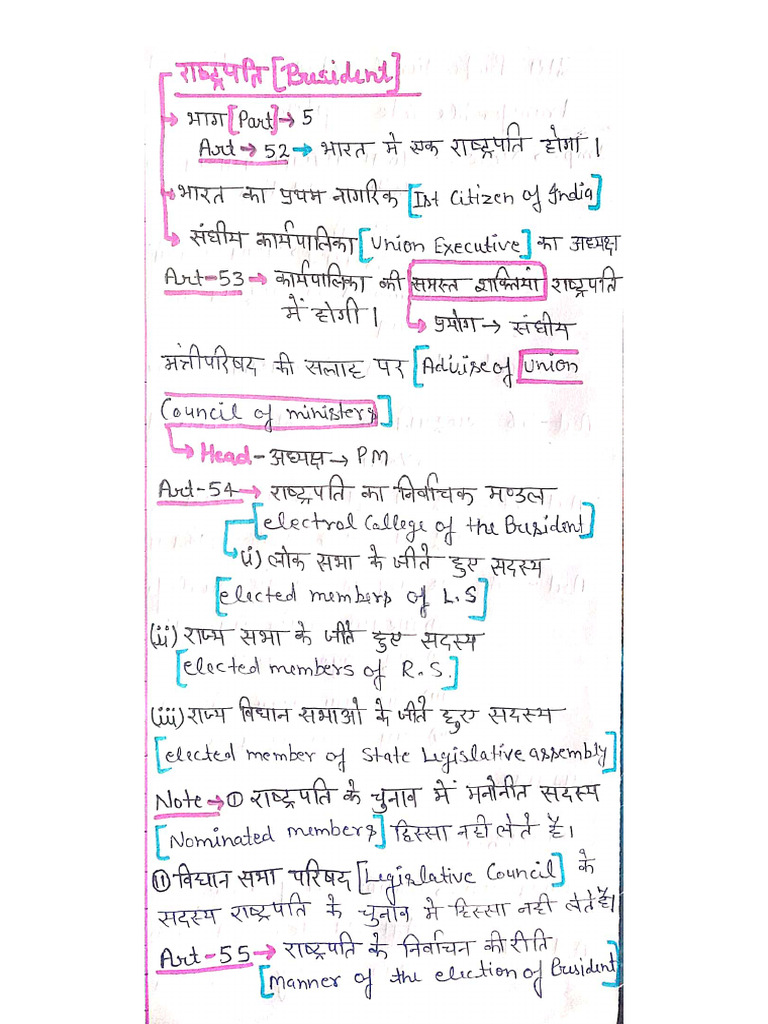 राष्ट्रपति [President]
→ भाग [Part] → 5
Art → 52 → भारत मे एक राष्ट्रपति होगा।
→ भारत का प्रथम नागरिक [Ist Citizen of India]
→ संघीय कार्यपालिका [Union Executive] का अध्यक्ष
Art-53 → कार्यपालिका की समस्त शक्तियां राष्ट्रपति
में होगी। प्रयोग → संघीय
मंत्रीपरिषद की सलाह पर [Advise of Union
Council of ministers]
Head - अध्यक्ष → P.M
Art-54 → राष्ट्रपति का निर्वाचक मण्डल
[electral College of the President]
(i) लोक सभा के जीते हुए सदस्य
[elected members of L.S]
(ii) राज्य सभा के जीते हुए सदस्य
[elected members of R.S.]
(iii) राज्य विधान सभाओ के जीते हुए सदस्य
[elected member of State Legislative assembly]
Note → ① राष्ट्रपति के चुनाव में मनोनीत सदस्य
[Nominated members] हिस्सा नही लेते है।
⑪ विधान सभा परिषद [Legislative Council] के
सदस्य राष्ट्रपति के चुनाव मे हिस्सा नही लेते है।
Art-55 → राष्ट्रपति के निर्वाचन की रीति
[Manner of the election of President]